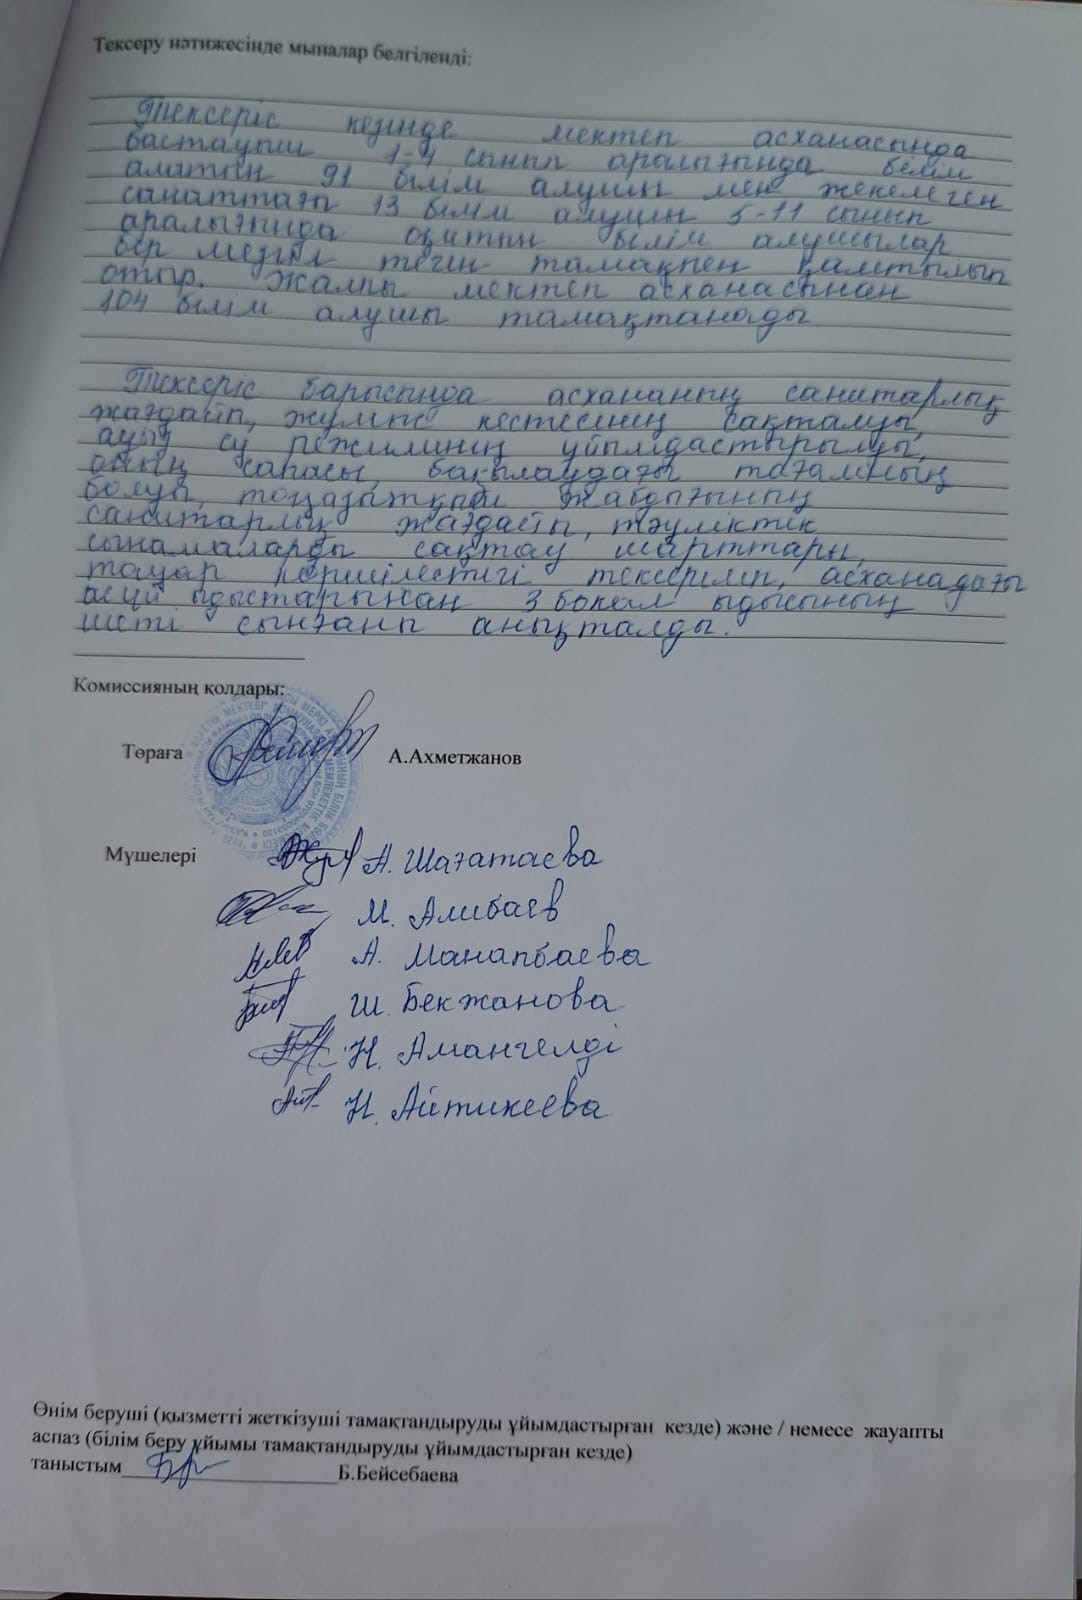 Тексеру нәтижесінде мыналар белгіленді:
Тексеріс кезінде мектеп асханасында
бастауыш 1-4 сынып аралығында білім
алатын 91 білім алушы мен жекелеген
санаттағы 13 білім алушы 5-11 сынып
аралығында оқитын білім алушылар
бір мезгіл тегін тамақпен қамтылып
отыр. Жалпы мектеп асханасынан
104 білім алушы тамақтанады
Тексеріс барысында асхананың санитарлық
жағдайы, жұмыс кестесінің сақталуы,
ауыз су режимінің ұйымдастырылуы,
оның сапасы, бақылаудағы тағамның
болуы, тоңазытқыш жабдығының
санитарлық жағдайы, тәуліктік
сынамаларды сақтау шарттары,
тауар көршілестігі тексеріліп, асханадағы
асүй ыдыстарынан 3 бокал ыдысының
шеті сынғаны анықталды.
Комиссияның қолдары:
Төраға А.Ахметжанов
Мүшелері А. Шағатаева
М. Алибаев
А. Манапбаева
Ш. Бекжанова
Н. Амангелді
Н. Айтикеева
Өнім беруші (қызметті жеткізуші тамақтандыруды ұйымдастырған кезде) және / немесе жауапты
аспаз (білім беру ұйымы тамақтандыруды ұйымдастырған кезде)
таныстым Б.Бейсебаева